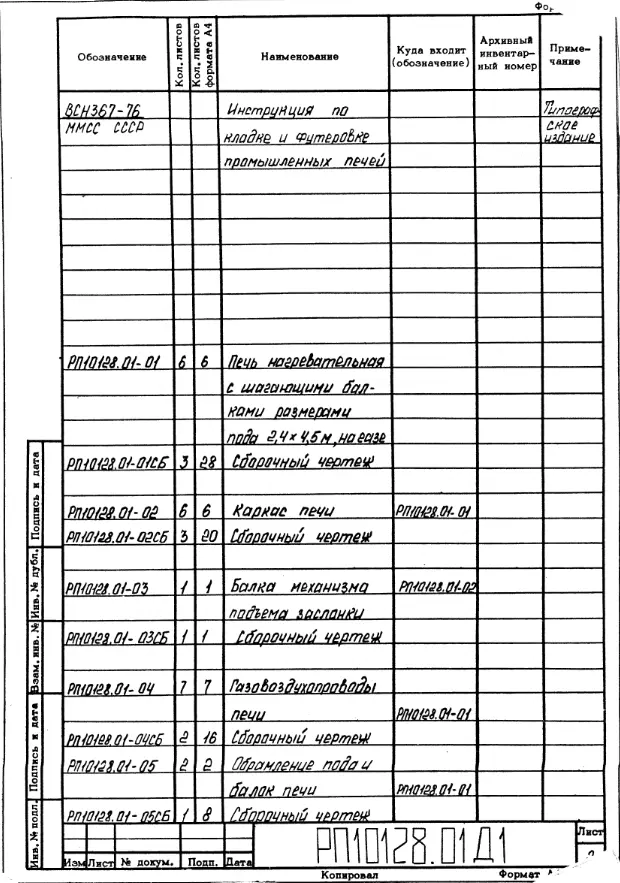 Обозначение Кол. листов Кол. листов формата А4 Наименование Куда входит (обозначение) Архивный инвентарный номер Примечание
ВСН367-76 Инструкция по Типограф
ММСС СССР кладке и футеровке ское
промышленных печей издание
РП10128.01-01 6 6 Печь нагревательная
с шагающими бал-
ками размерами
пода 2,4×4,5м, на газе
РП10128.01-01СБ 3 28 Сборочный чертеж
РП10128.01-02 6 6 Каркас печи РП10128.01-01
РП10128.01-02СБ 3 20 Сборочный чертеж
РП10128.01-03 1 1 Балка механизма РП10128.01-02
подъема заслонки
РП10128.01-03СБ 1 1 Сборочный чертеж
РП10128.01-04 7 7 Газовоздухопроводы
печи РП10128.01-01
РП10128.01-04СБ 2 16 Сборочный чертеж
РП10128.01-05 2 2 Обрамление пода и
балок печи РП10128.01-01
РП10128.01-05СБ 1 8 Сборочный чертеж
Инв. № подл. Подпись и дата Взам. инв. № Инв. № дубл. Подпись и дата
РП10128.01Д1 Лист
Изм Лист № докум. Подп. Дата
Копировал Формат